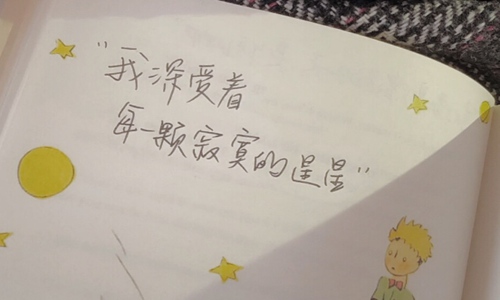 “我深爱着
每一颗寂寞的星星”